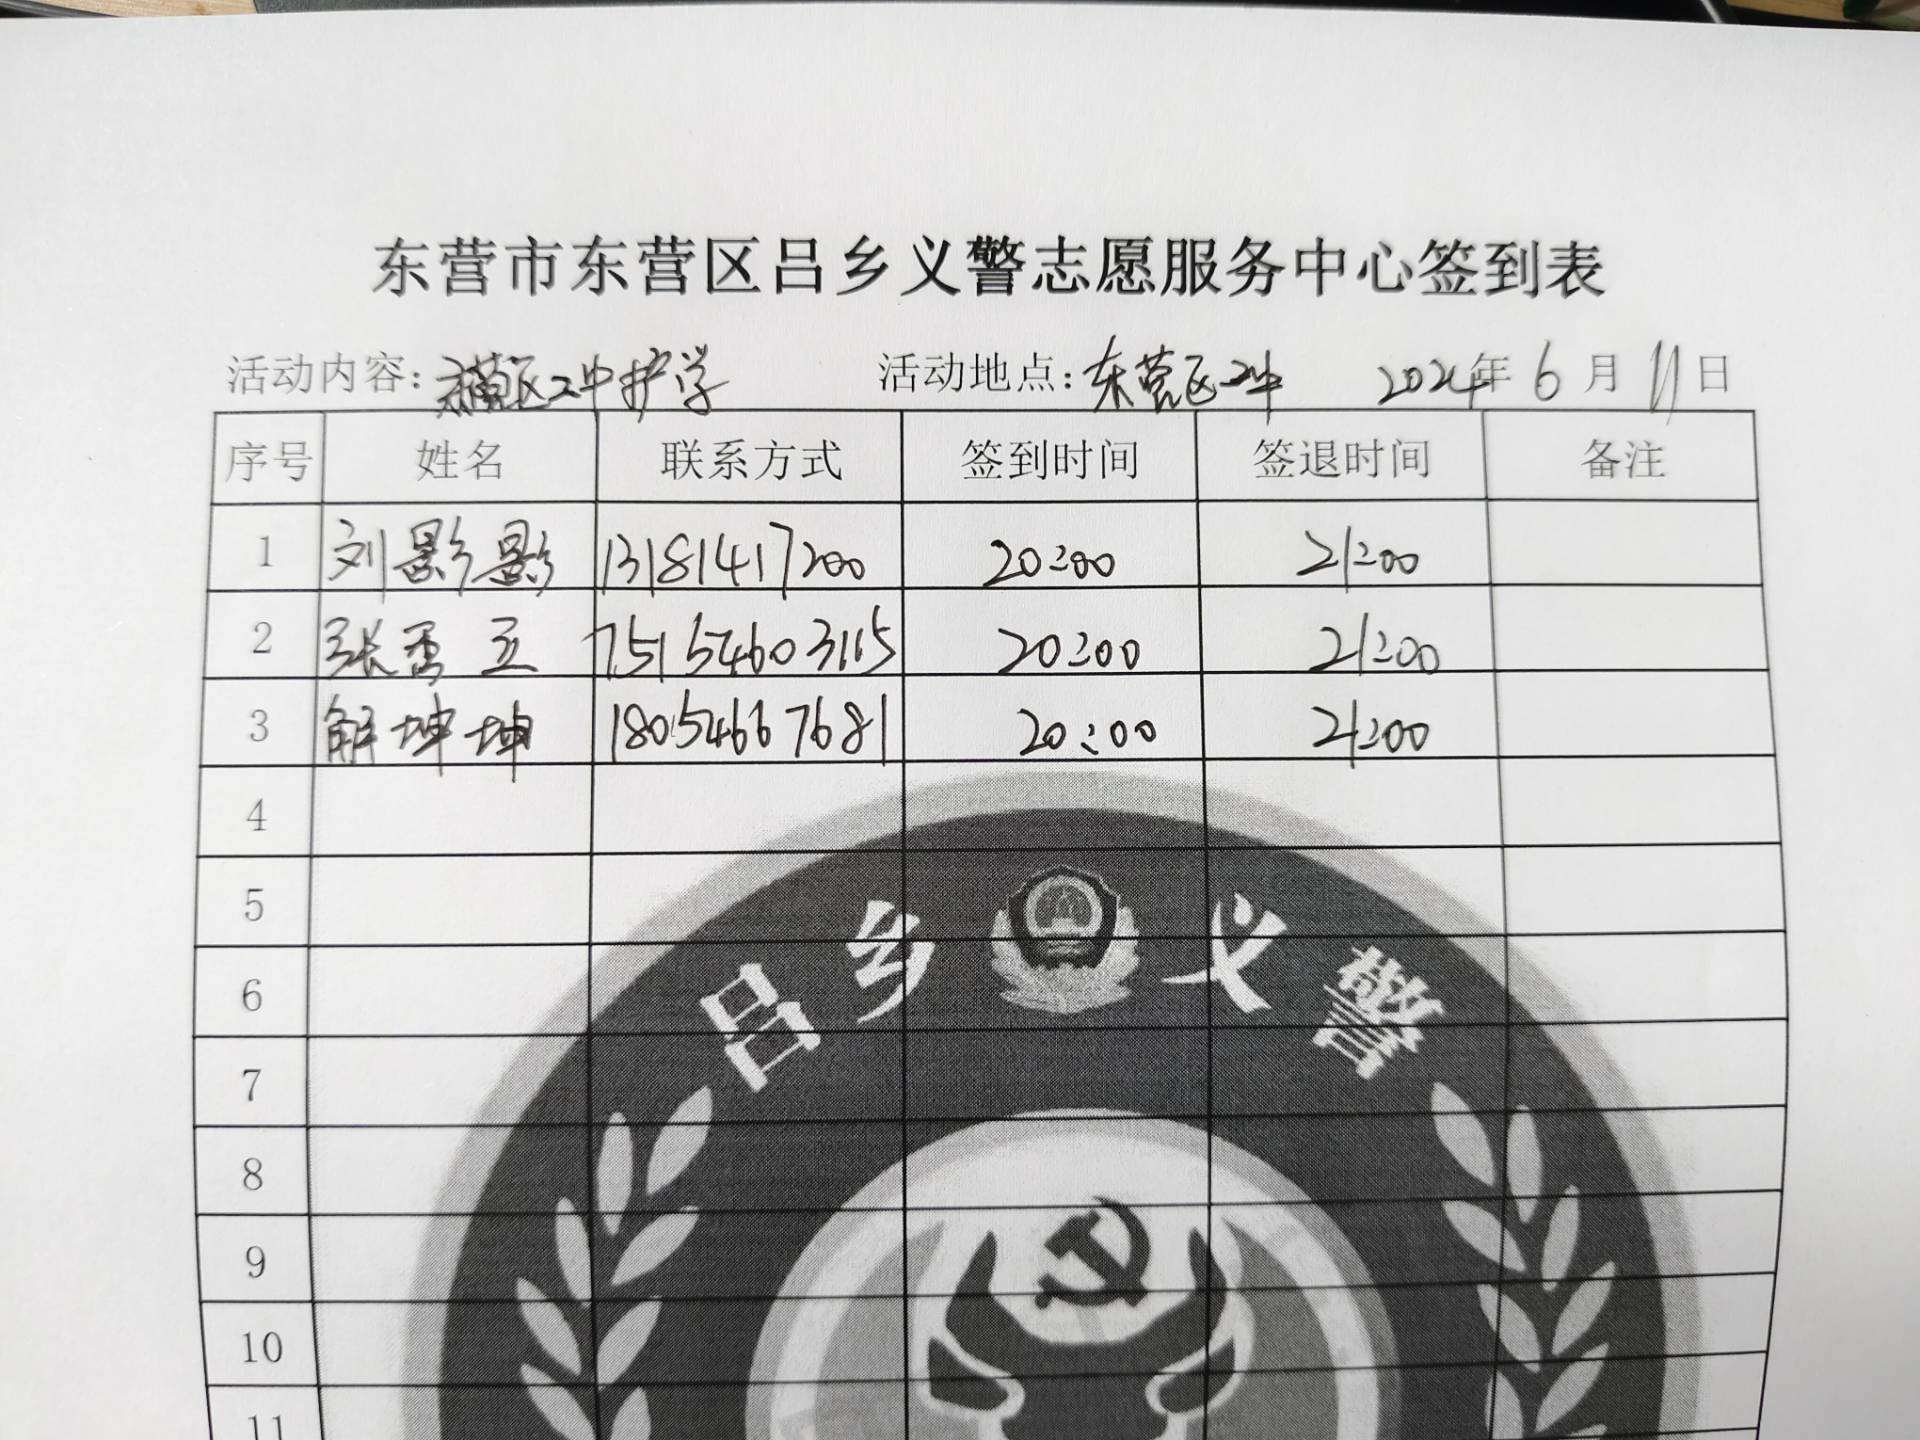 东营市东营区吕乡义警志愿服务中心签到表
活动内容：东营区二中护学 活动地点：东营区二中 2024年6月11日
序号 姓名 联系方式 签到时间 签退时间 备注
1 刘影影 13181417200 20:00 21:00
2 张秀 15154603115 20:00 21:00
3 解坤坤 18054667681 20:00 21:00
4
5
6
7
8
9
10
11
吕乡义警